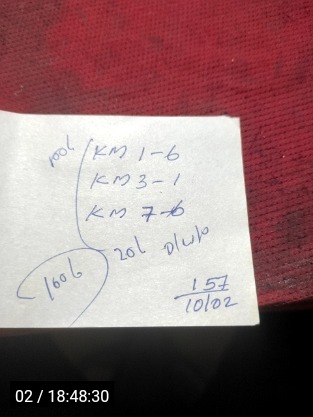 100L
KM 1-6
KM 3-1
KM 7-6
20L D/W/P
160L
157
10/02
02 / 18:48:30